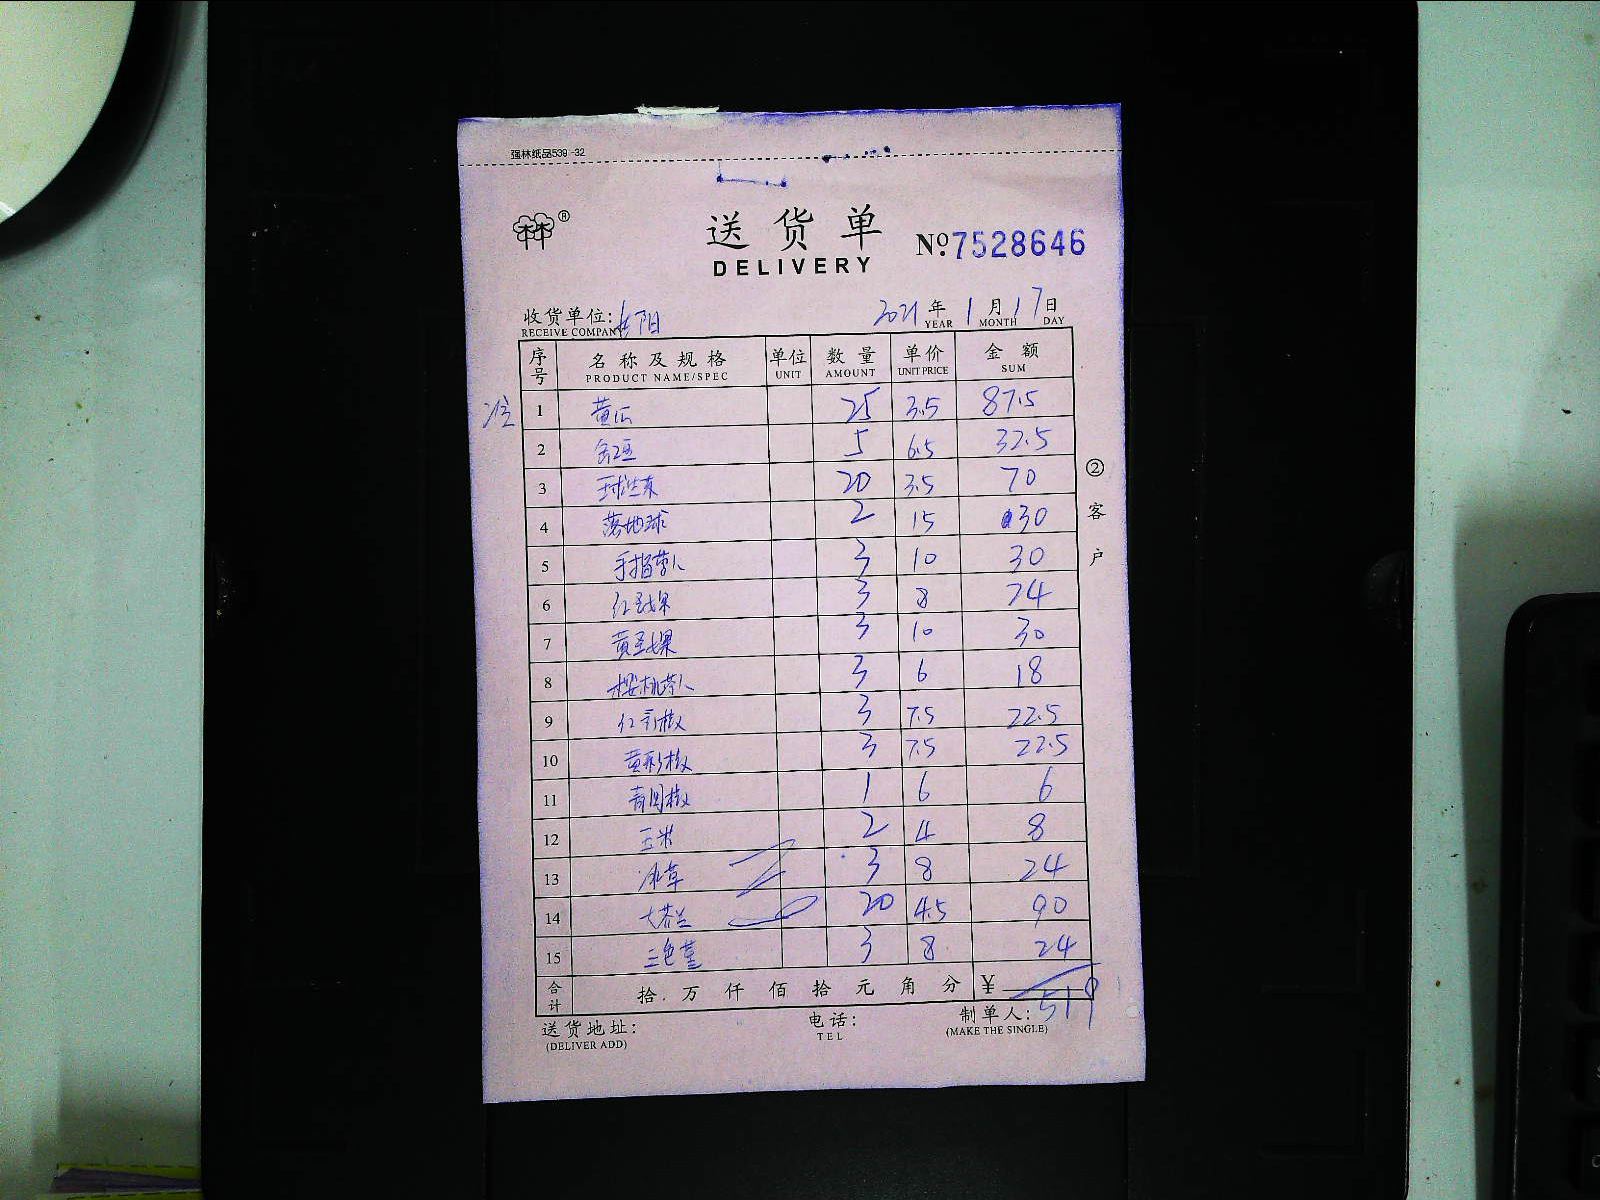 强林纸品539-32
林®
送货单 №:7528646
DELIVERY
收货单位: 2021年1月17日
RECEIVE COMPANY YEAR MONTH DAY
序号 名称及规格 单位 数量 单价 金额
PRODUCT NAME/SPEC UNIT AMOUNT UNIT PRICE SUM
1 黄瓜 25 3.5 87.5
2 5 6.5 32.5
3 20 3.5 70
4 落地球 2 15 30
5 手指萝卜 3 10 30
6 红圣女果 3 8 24
7 黄圣女果 3 10 30
8 樱桃萝卜 3 6 18
9 红彩椒 3 7.5 22.5
10 黄彩椒 3 7.5 22.5
11 青圆椒 1 6 6
12 玉米 2 4 8
13 冰草 3 8 24
14 大芥兰 20 4.5 90
15 三色堇 3 8 24
合计 拾 万 仟 佰 拾 元 角 分 ¥ 519
送货地址: 电话: 制单人:
(DELIVER ADD) TEL (MAKE THE SINGLE)
②客户